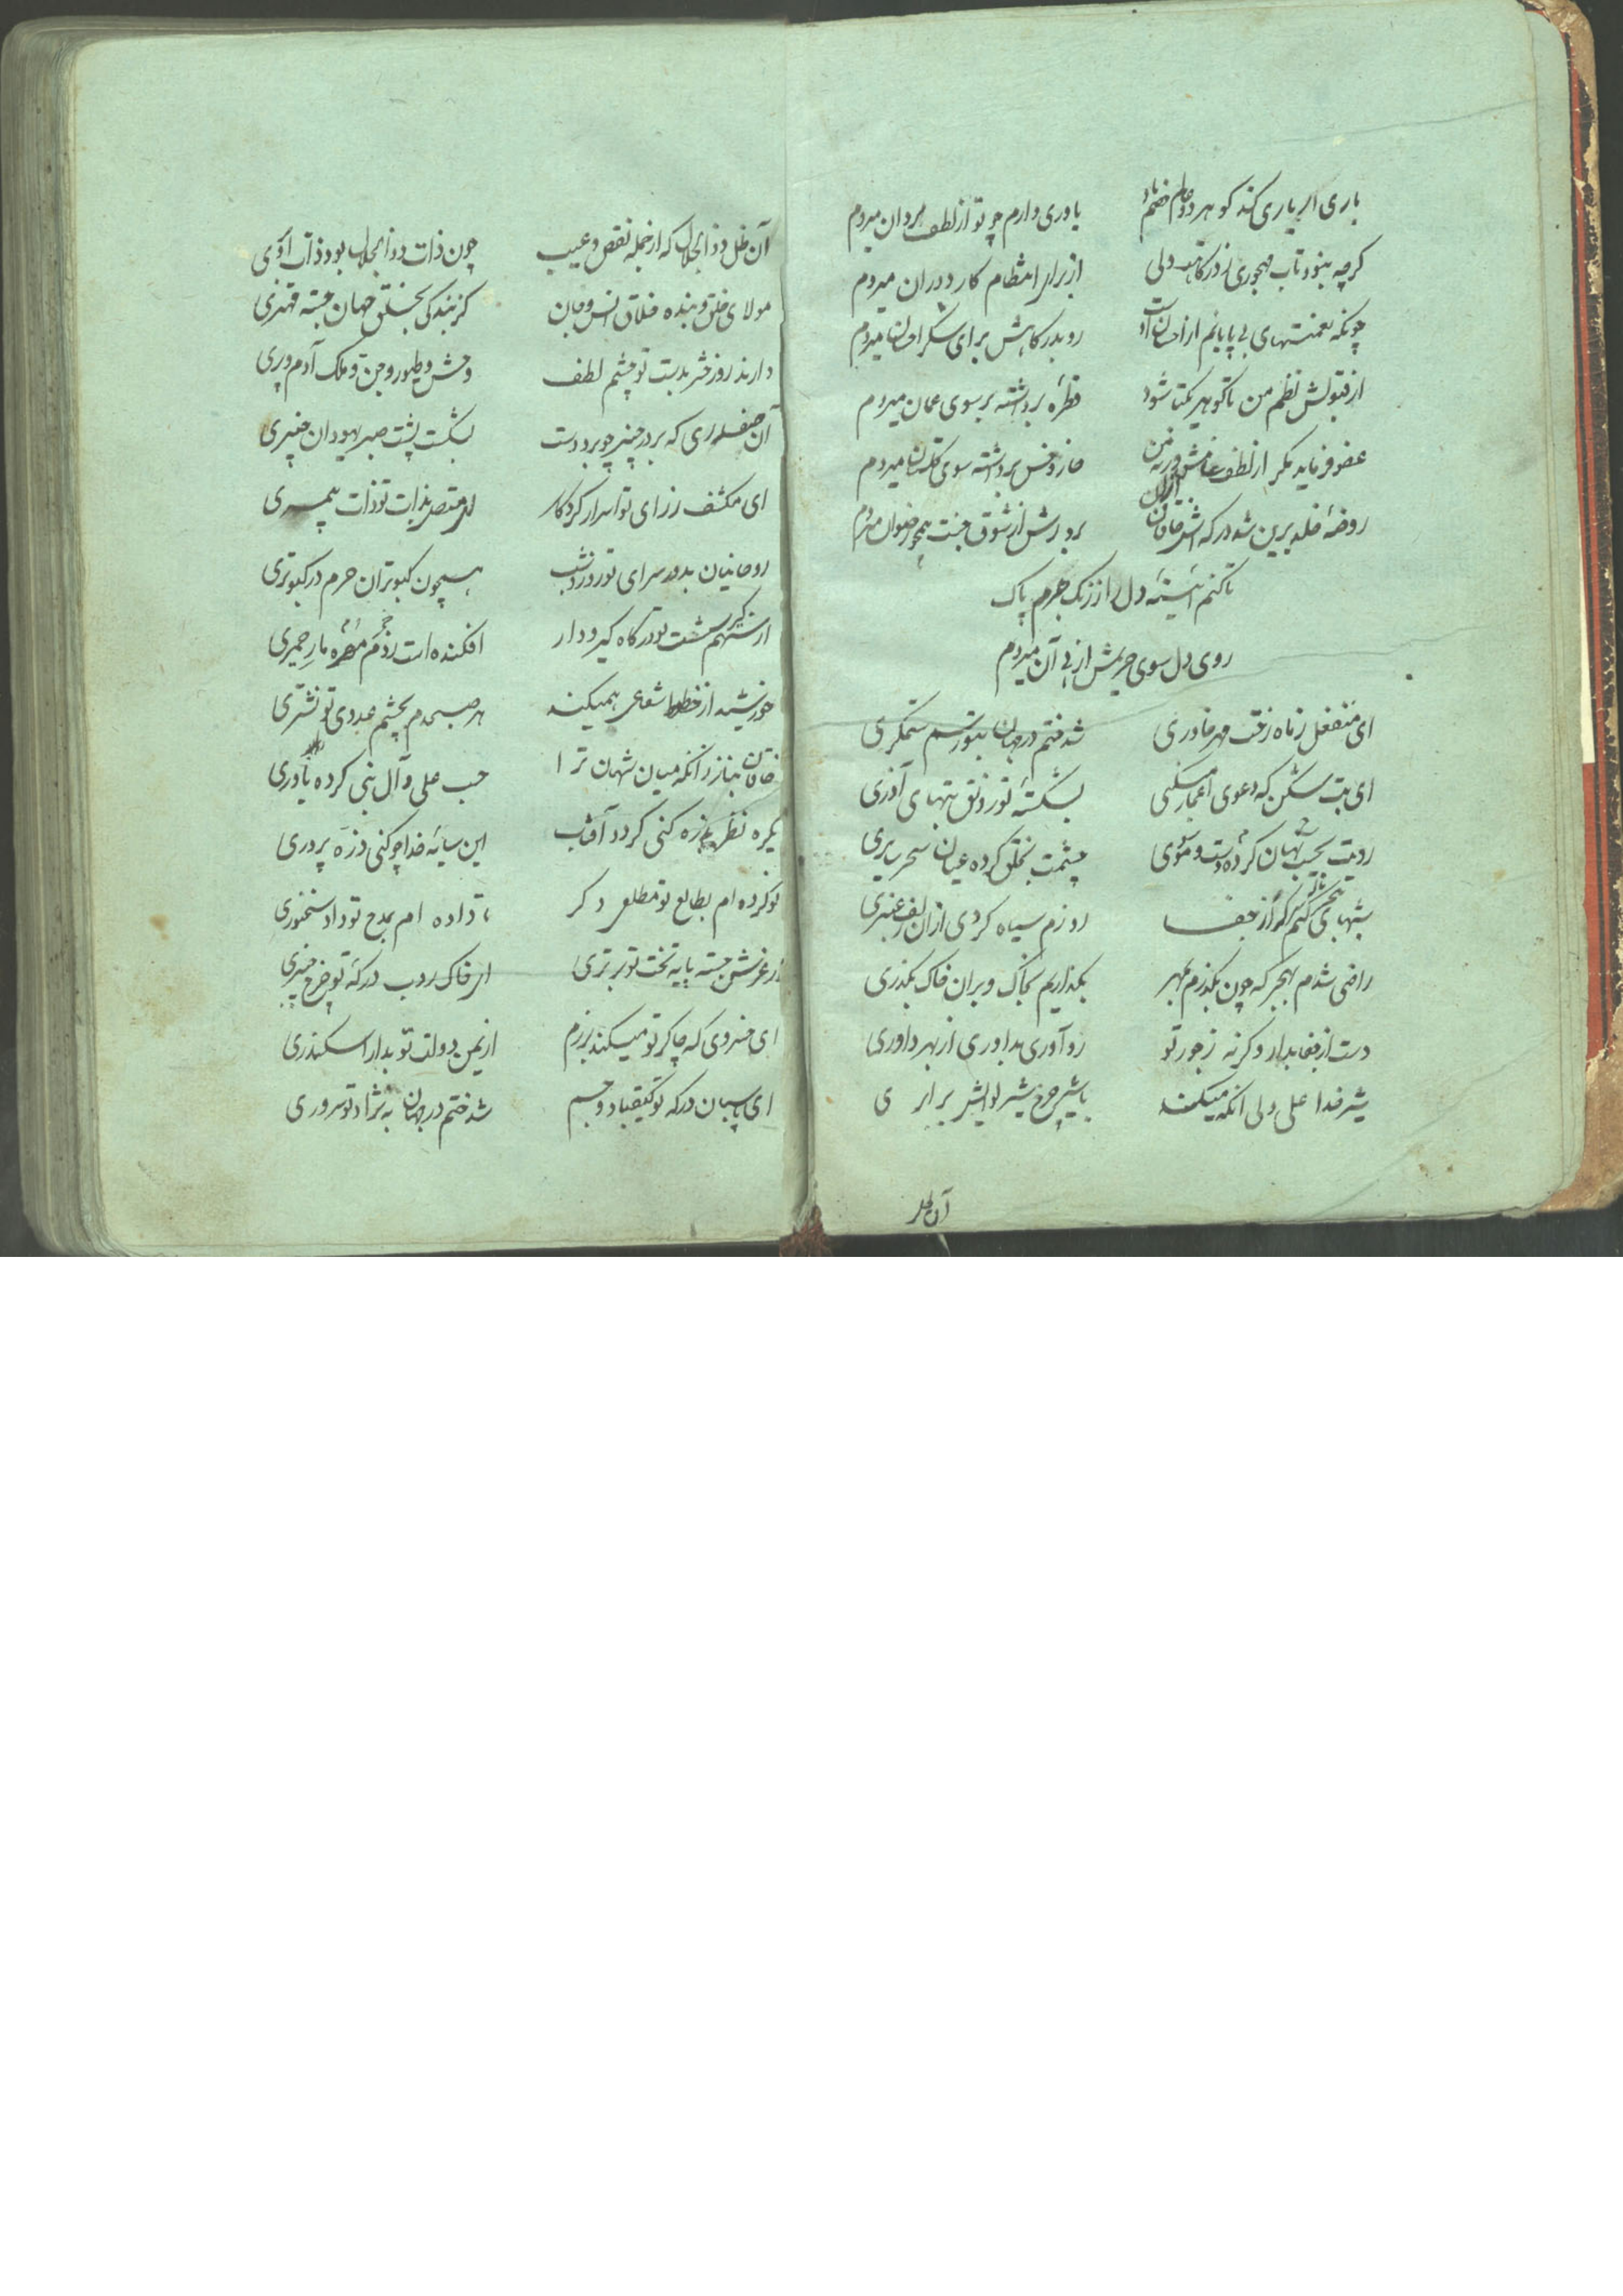 باری ار یاری کند کو هر دو عالم خصم باد یاوری دارم چو تو از لطف مردان میروم
کرچه نبود تاب مهجوری ز درکاهت ولی از برای انتظام کار دوران میروم
چونکه نعمتهای بی پایانم از احسان اوست رو بدرکاهش برای شکر احسان میروم
از قبولش نظم من تا کوهر یکتا شود قطرهٔ برداشته بر سوی عمان میروم
عفو فرماید مکر از لطف عامش ورنه من خار و خس برداشته سوی کلستان میروم
روضهٔ خلد برین شد درکه اش خاقان از آن بر درش از شوق جنت همچو رضوان میروم
تا کنم آئینهٔ دل را ز زنک جرم پاک
روی دل سوی حریمش از پی آن میروم
ای منفعل ز ماه رخت مهر خاوری شد ختم در جهان بتو رسم ستمکری
ای بت شکن که دعوی اعجاز میکنی بشکستهٔ تو رونق بتهای آذری
رویت بجیب نهان کرده دست موسوی چشمت بخلق کرده عیان سحر سامری
شبهای هجر کنم کر از جفا روزم سیاه کردی از آن زلف عنبری
راضی شدم بهجر که چون بکذرم بمهر بکذاریم بخاک و بر آن خاک بکذری
دست از جفا بدار وکرنه ز جور تو رو آوری بداوری از بهر داوری
شیر خدا علی ولی آنکه میکند با شیر چرخ شیر لوایش برابری
آن ظل
آن ظل ذوالجلال که از جمله نقص و عیب چون ذات ذوالجلال بود ذات او بری
مولای خلق و بنده خلاق انس و جان کز بندکی بخلق جهان جسته مهتری
دارند روز حشر بدست تو چشم لطف وحش و طیور و جن و ملک آدم و پری
آن صفدری که بر در خیبر چو برد دست بشکست پشت صبر یهودان خیبری
ای منکشف ز رای تو اسرار کردکار ای مقتصر بذات تو ذات پیمبری
روحانیان بدور سرای تو روز و شب همچون کبوتران حرم در کبوتری
از سهم تیر شست تو در کاه کیر و دار افکنده است رذم مهره مار حمیری
خورشید از خطوط شعاعی همیکند هر صبحدم بچشم عدوی تو نشتری
خاقان بناز زانکه میان شهان ترا حب علی و آل نبی کرده یاوری
یکره نظر بذره کنی کردد آفتاب این سایهٔ خدا چو کنی ذره پروری
نو کرده ام بطالع تو مطلعی دکر تا داده ام بمدح تو داد سخنوری
از عرش جسته پایه تخت تو برتری ای خاک روب درکه تو چرخ چنبری
ای خسروی که چاکر تو میکند برزم از یمن دولت تو بدارا سکندری
ای پاسبان درکه تو کیقباد و جم شد ختم در جهان به نژاد تو سروری